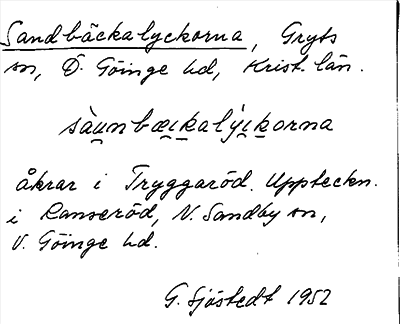 Sandbäckalyckorna, Gryts
sn, Ö. Göinge hd, Krist. län.
sàu̯nbæi̯kalýi̯korna
åkrar i Tryggaröd. Uppteckn.
i Ranseröd, N. Sandby sn,
V. Göinge hd.
G. Sjöstedt 1952